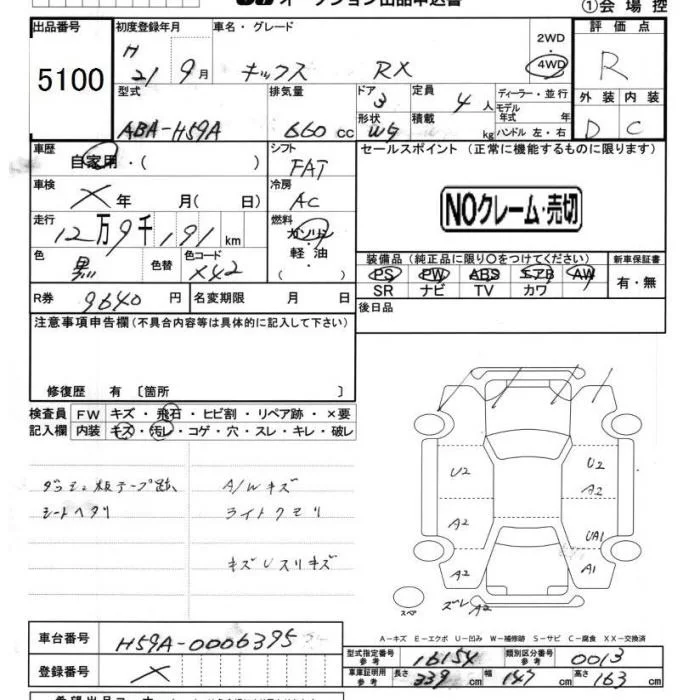 オークション出品申込書
①会場控
出品番号 初度登録年月 車名・グレード 2WD・4WD 評価点
5100 H21 9月 キックス RX R
型式 排気量 ドア 3 定員 4人 ディーラー・並行 外装 内装
ABA-H59A 660cc 形状 WG 積載 kg モデル年式 年 ハンドル 左・右 D C
車歴 自家用・( ) シフト FAT セールスポイント (正常に機能するものに限ります)
車検 × 年 月( 日) 冷房 AC
NOクレーム・売切
走行 12万9千191km 燃料 ガソリン・軽油 ( )
色 黒 色替 色コード X42 装備品 (純正品に限り〇をつけてください) 新車保証書
PS PW ABS エアB AW 有・無
SR ナビ TV カワ
R券 9640円 名変期限 月 日 後日品
注意事項申告欄 (不具合内容等は具体的に記入して下さい)
修復歴 有 〔箇所 〕
検査員 FW キズ・飛石・ヒビ割・リペア跡・×要
記入欄 内装 キズ・汚レ・コゲ・穴・スレ・キレ・破レ
テープ跡 A/Wキズ
シートヘタリ ライトクモリ
キズUスリキズ
U2 U2
A2
A2 UA1
A2 A1
スペア ズレ A2
A-キズ E-エクボ U-凹み W-補修跡 S-サビ C-腐食 XX-交換済
車台番号 H59A-0006395
型式指定番号 参考 16154 類別区分番号 参考 0013
登録番号 ×
車庫証明用 参考 長さ 339cm 幅 147cm 高さ 163cm